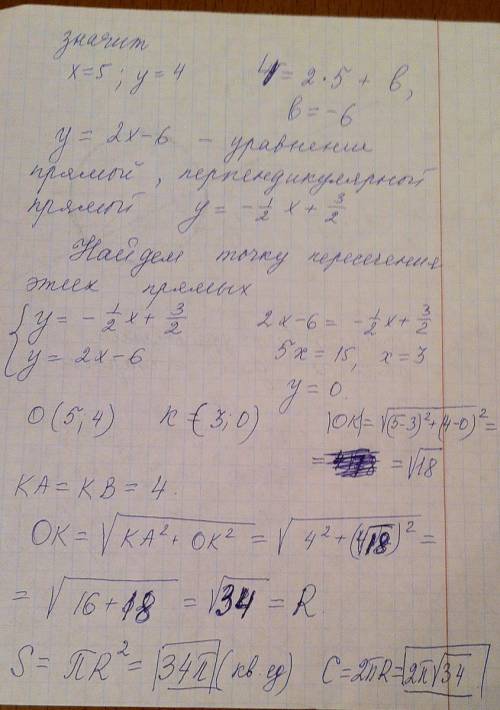 значит
x=5 ; y=4   4=2·5+в,
в=-6
y = 2x-6 - уравнение
прямый, перпендикулярной
прямый   y = -1/2 x + 3/2
Найдем точку пересечения
этих прямых
{ y = -1/2 x + 3/2   2x-6 = -1/2 x + 3/2
y = 2x-6   5x = 15, x=3
y = 0.
O(5;4)   K=(3;0)   |OK|=√((5-3)²+(4-0)²=
= √18
KA = KB = 4.
OK = √(KA²+OK²) = √(4²+(√18)²) =
= √(16+18) = √34 = R.
S = πR² = 34π (кв.ед)   C=2πR=2π√34